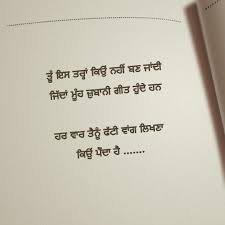 ਤੂੰ ਇਸ ਤਰ੍ਹਾਂ ਕਿਉਂ ਨਹੀਂ ਬਣ ਜਾਂਦੀ
ਜਿੱਦਾਂ ਮੂੰਹ ਜ਼ੁਬਾਨੀ ਗੀਤ ਹੁੰਦੇ ਹਨ
ਹਰ ਵਾਰ ਤੈਨੂੰ ਫੱਟੀ ਵਾਂਗ ਲਿਖਣਾ
ਕਿਉਂ ਪੈਂਦਾ ਹੈ .......